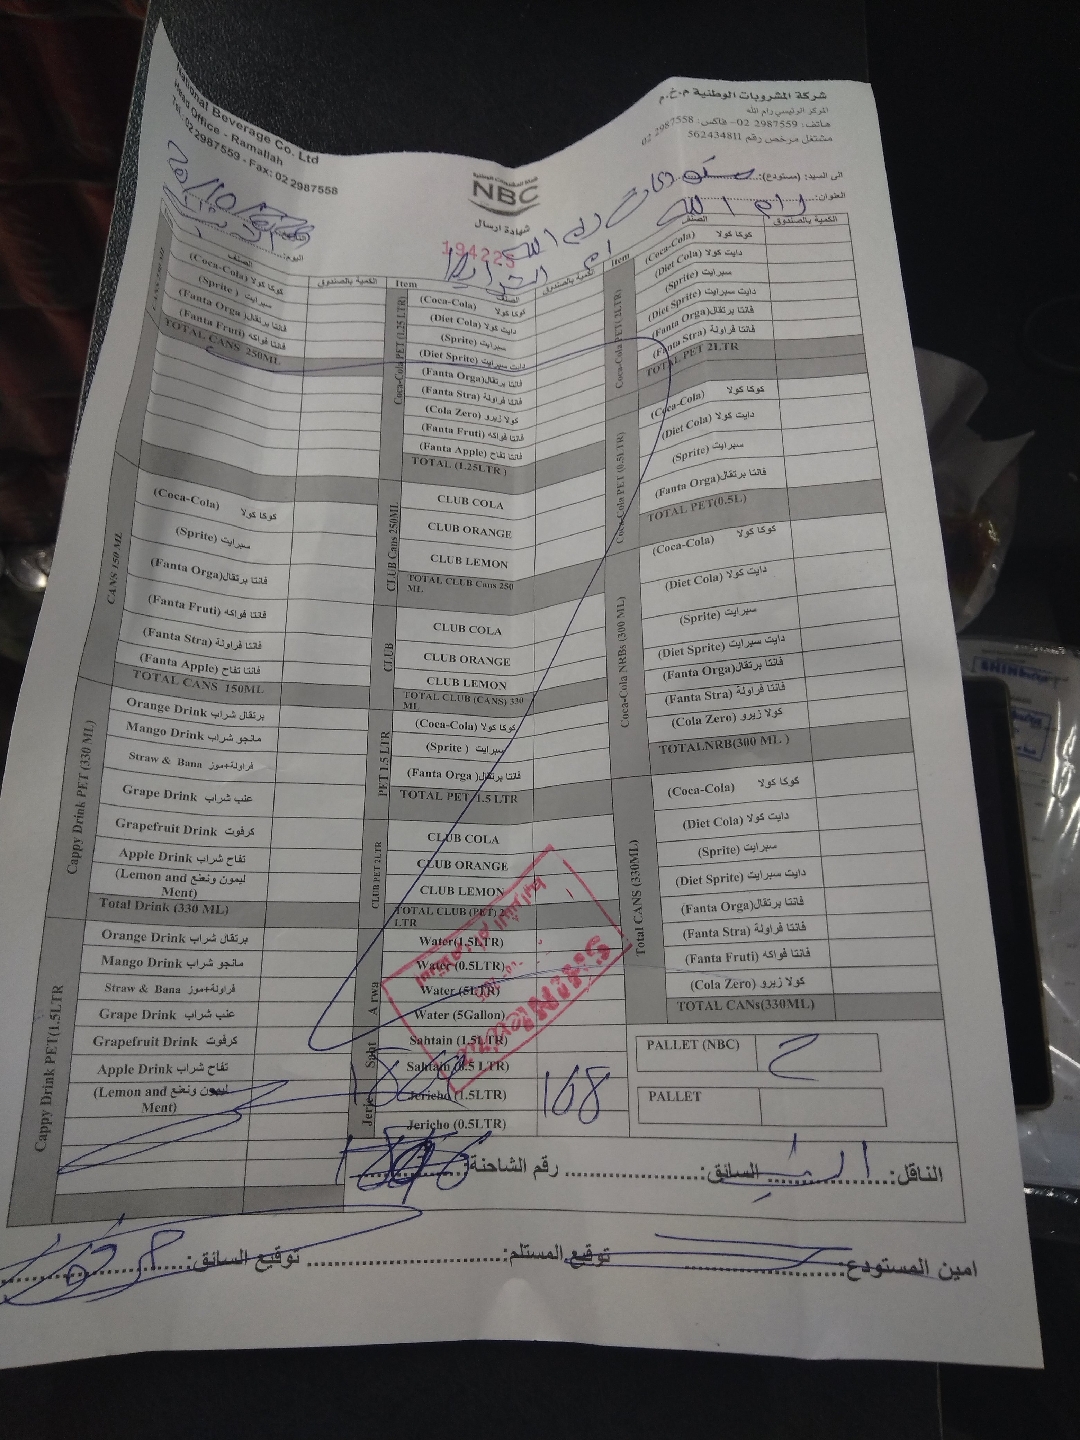 National Beverage Co. Ltd
Head Office - Ramallah
Tel.: 02 2987559 - Fax: 02 2987558
شركة المشروبات الوطنية م.خ.م
المركز الرئيسي رام الله
هاتف: 2987559 02- فاكس: 2987558 02
مشتغل مرخص رقم 562434811
NBC
شهادة ارسال
194225
الى السيد: (مستودع):
العنوان: رام الله
اليوم:
الصنف
الكمية بالصندوق
(Coca-Cola) كوكا كولا
(Sprite) سبرايت
(Fanta Orga) فانتا برتقال
(Fanta Fruti) فانتا فواكه
TOTAL CANS 250ML
CANS 150 ML
(Coca-Cola) كوكا كولا
(Sprite) سبرايت
(Fanta Orga) فانتا برتقال
(Fanta Fruti) فانتا فواكه
(Fanta Stra) فانتا فراولة
(Fanta Apple) فانتا تفاح
TOTAL CANS 150ML
Cappy Drink PET (330 ML)
Orange Drink برتقال شراب
Mango Drink مانجو شراب
Straw & Bana فراولة+موز
Grape Drink عنب شراب
Grapefruit Drink كرفوت
Apple Drink تفاح شراب
(Lemon and ليمون ونعنع
Ment)
Total Drink (330 ML)
Cappy Drink PET(1.5LTR
Orange Drink برتقال شراب
Mango Drink مانجو شراب
Straw & Bana فراولة+موز
Grape Drink عنب شراب
Grapefruit Drink كرفوت
Apple Drink تفاح شراب
(Lemon and ليمون ونعنع
Ment)
Item
الصنف
الكمية بالصندوق
Coca-Cola PET (1.25 LTR)
(Coca-Cola) كوكا كولا
(Diet Cola) دايت كولا
(Sprite) سبرايت
(Diet Sprite) دايت سبرايت
(Fanta Orga) فانتا برتقال
(Fanta Stra) فانتا فراولة
(Cola Zero) كولا زيرو
(Fanta Fruti) فانتا فواكه
(Fanta Apple) فانتا تفاح
TOTAL (1.25LTR )
CLUB Cans 250ML
CLUB COLA
CLUB ORANGE
CLUB LEMON
TOTAL CLUB Cans 250
ML
CLUB
CLUB COLA
CLUB ORANGE
CLUB LEMON
TOTAL CLUB (CANS) 330
ML
PET 1.5 LTR
(Coca-Cola) كوكا كولا
(Sprite ) سبرايت
(Fanta Orga) فانتا برتقال
TOTAL PET 1.5 LTR
CLUB PET 2LTR
CLUB COLA
CLUB ORANGE
CLUB LEMON
TOTAL CLUB (PET) 2
LTR
Arwa
Water(1.5LTR)
Water (0.5LTR)
Water (5LTR)
Water (5Gallon)
Sahtain (1.5LTR)
Sahtain (0.5 LTR)
Jericho (1.5LTR)
Jericho (0.5LTR)
168
Item
الصنف
الكمية بالصندوق
Coca-Cola PET( 2LTR)
(Coca-Cola) كوكا كولا
(Diet Cola) دايت كولا
(Sprite) سبرايت
(Diet Sprite) دايت سبرايت
(Fanta Orga) فانتا برتقال
(Fanta Stra) فانتا فراولة
TOTAL PET 2LTR
Coca-Cola PET (0.5LTR)
(Coca-Cola) كوكا كولا
(Diet Cola) دايت كولا
(Sprite) سبرايت
(Fanta Orga) فانتا برتقال
TOTAL PET(0.5L)
Coca-Cola NRBs (300 ML)
(Coca-Cola) كوكا كولا
(Diet Cola) دايت كولا
(Sprite) سبرايت
(Diet Sprite) دايت سبرايت
(Fanta Orga) فانتا برتقال
(Fanta Stra) فانتا فراولة
(Cola Zero) كولا زيرو
TOTALNRB(300 ML )
Total CANS (330ML)
(Coca-Cola) كوكا كولا
(Diet Cola) دايت كولا
(Sprite) سبرايت
(Diet Sprite) دايت سبرايت
(Fanta Orga) فانتا برتقال
(Fanta Stra) فانتا فراولة
(Fanta Fruti) فانتا فواكه
(Cola Zero) كولا زيرو
TOTAL CANs(330ML)
PALLET (NBC)
PALLET
الناقل: السائق: رقم الشاحنة:
امين المستودع: توقيع المستلم: توقيع السائق: